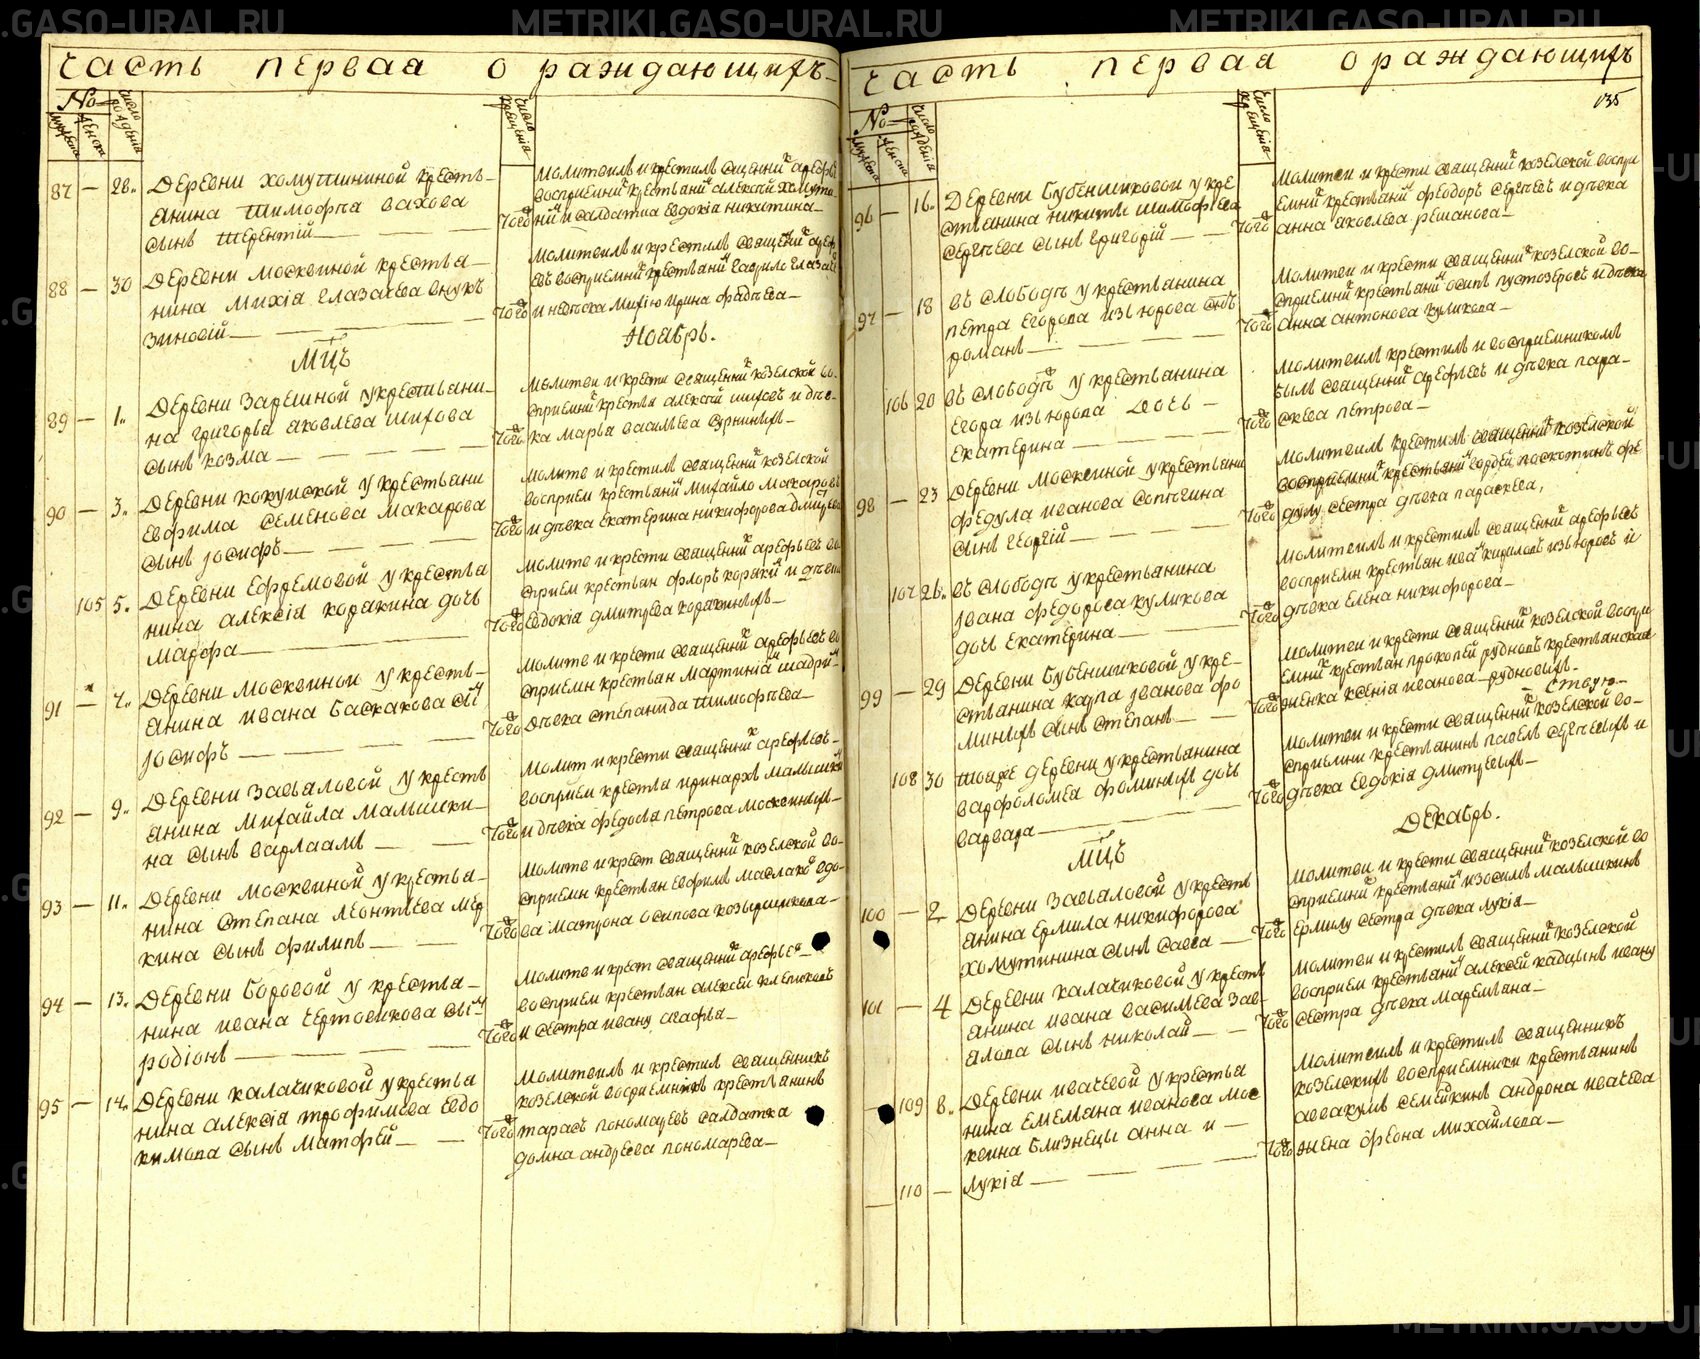 METRIKI.GASO-URAL.RU
часть первая о раждающихъ
№
мужеска
женска
число рожденія
число крещенія
87 — 28. Деревни Хомутининой кресть-
янина Тимофѣа Вахова
сынъ Терентій
того
молитвилъ и крестилъ сщенникъ Арефьевъ
восприемникъ крестьянинъ Алексѣй Хомути-
нинъ и салдатка Евдокіа Никитина
88 — 30 Деревни Москвиной крестья-
нина Михіа Глазачева внукъ
Зиновій
того
молитвилъ и крестилъ священникъ Арефь-
евъ восприемникъ крестьянинъ Гаврило Глазачевъ
и ндѣвка Михію Ирина Фадѣева
МЦЪ Ноябрь.
89 — 1. Деревни Зарешной у крестьяни-
на Григорья Яковлева Шихова
сынъ Козма
того
молитви и крести священникъ Козелской во-
сприемникъ крестья Алексѣй Шиховъ и дѣв-
ка Марья Васильева Сурниныхъ
90 — 3. Деревни Кокуйской у крестьяни
Евфима Семенова Макарова
сынъ Іосифъ
того
молитв и крестилъ священникъ Козелской
восприем крестьянинъ Михайло Макаровъ
и дѣвка Екатерина Никифорова Дмитрева
105 5. Деревни Ефремовой у крестья
нина Алексіа Корякина дочь
Марфа
того
молитв и крести священникъ Арефьевъ во-
сприем крестьян Флоръ Корякинъ и дѣвка
Евдокіа Дмитрева Корякиныхъ
91 — 7. Деревни Москвиной у кресть-
янина Ивана Баскакова сынъ
Іосифъ
того
молитв и крести священникъ Арефьевъ во
сприемн крестьян Мартиніанъ Шадринъ
дѣвка Степанида Тимофѣева
92 — 9. Деревни Завьяловой у кресть
янина Михайла Малышки-
на сынъ Варлаамъ
того
молит и крести священникъ Арефьевъ
восприем крестья Иринархъ Малышкинъ
и дѣвка Федосья Петрова Москвиныхъ
93 — 11. Деревни Москвиной у крестья-
нина Степана Леонтьева Мер
кина сынъ Филипъ
того
молитв и крест священникъ Козелской во-
сприемн крестьян Евфимъ Маслаковъ вдо-
ва Матрона Осипова Козырщикова
94 — 13. Деревни Боровой у крестья-
нина Ивана Чертовикова сынъ
Родіонъ
того
молитв и крест священникъ Арефьевъ
восприем крестьян Алексѣй Клепиковъ
и сестра Ивану Агафья
95 — 14. Деревни Калачиковой у крестья
нина Алексіа Трофимова Евдо
кимова сынъ Матфей
того
молитвилъ и крестилъ священникъ
Козелской восприемникъ крестьянинъ
Тарасъ Пономаревъ салдатка
Домна Андреева Пономарева
часть первая о раждающихъ
135
№
мужеска
женска
число рожденія
число крещенія
96 — 16. Деревни Бубенщиковой у кре
стьянина Никиты Тимофѣева
Сергѣева сынъ Григорій
того
молитви и крести священникъ Козелской воспри
емникъ крестьянинъ Феодоръ Сергѣевъ и дѣвка
Анна Яковлева Решанова
97 — 18 въ слободѣ у крестьянина
Петра Егорова Извюрова сынъ
Романъ
того
молитви и крести священникъ Козелской во-
сприемникъ крестьянинъ Осипъ Пустозеровъ и дѣвка
Анна Антонова Куликова
106 20 въ слободѣ у крестьянина
Егора Извюрова дочь
Екатерина
того
молитвилъ крестилъ и восприемникомъ
былъ священникъ Арефьевъ и дѣвка Пара-
скева Петрова
98 — 23 Деревни Москвиной у крестьяни
Федула Иванова Сопѣгина
сынъ Георгій
того
молитвилъ крестилъ священникъ Козелской
восприемникъ крестьянинъ Гордей Паскотинъ Фе
дулу сестра дѣвка Параскева,
107 26. въ слободѣ у крестьянина
Івана Федорова Куликова
дочь Екатерина
того
молитвилъ и крестилъ священникъ Арефьевъ
восприемн крестьян Иванъ Кириловъ Извюровъ и
дѣвка Елена Никифорова
99 — 29 Деревни Бубенщиковой у кре-
стьянина Карпа Іванова Фо
миныхъ сынъ Стефанъ
того
молитви и крести священникъ Козелской воспри
емникъ крестьян Прокопей Рудновъ крестьянская
женка Ксеніа Иванова Рудновыхъ
108 30 тояже деревни у крестьянина
Варфоломеа Фоминыхъ дочь
Варвара
того
молитви и крести священникъ Козелской во-
сприемни крестьянинъ Павелъ Сергѣевыхъ и
дѣвка Евдокіа Дмитревыхъ
МЦЪ Декабрь.
100 — 2 Деревни Завьяловой у кресть
янина Ермила Никифорова
Хомутинина сынъ Савва
того
молитви и крести священникъ Козелской во
сприемникъ крестьянинъ Изосимъ Малышкинъ
Ермилу сестра дѣвка Лукіа
101 — 4 Деревни Калачиковой у кресть
янина Ивана Васильева Зав-
ялова сынъ Николай
того
молитви и крестилъ священникъ Козелской
восприем крестьянинъ Алексей Кадцынъ Ивану
сестра дѣвка Маремьяна
109 8. Деревни Ивачевой у крестья
нина Емельяна Иванова Мос
квина близнецы Анна и
110 — Лукіа
того
молитвилъ и крестилъ священникъ
Козелскихъ восприемники крестьянинъ
Аввакумъ Семейкинъ Андрона Ивачева
жена Феона Михайлова